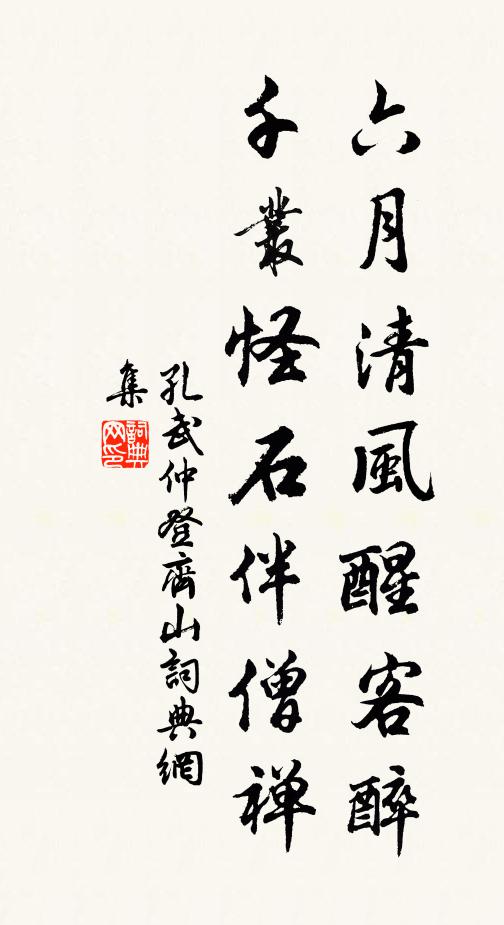 六月清風醒客醉
千叢怪石伴僧禅
孔武仲登齊山詞典網
集
詞典
网印